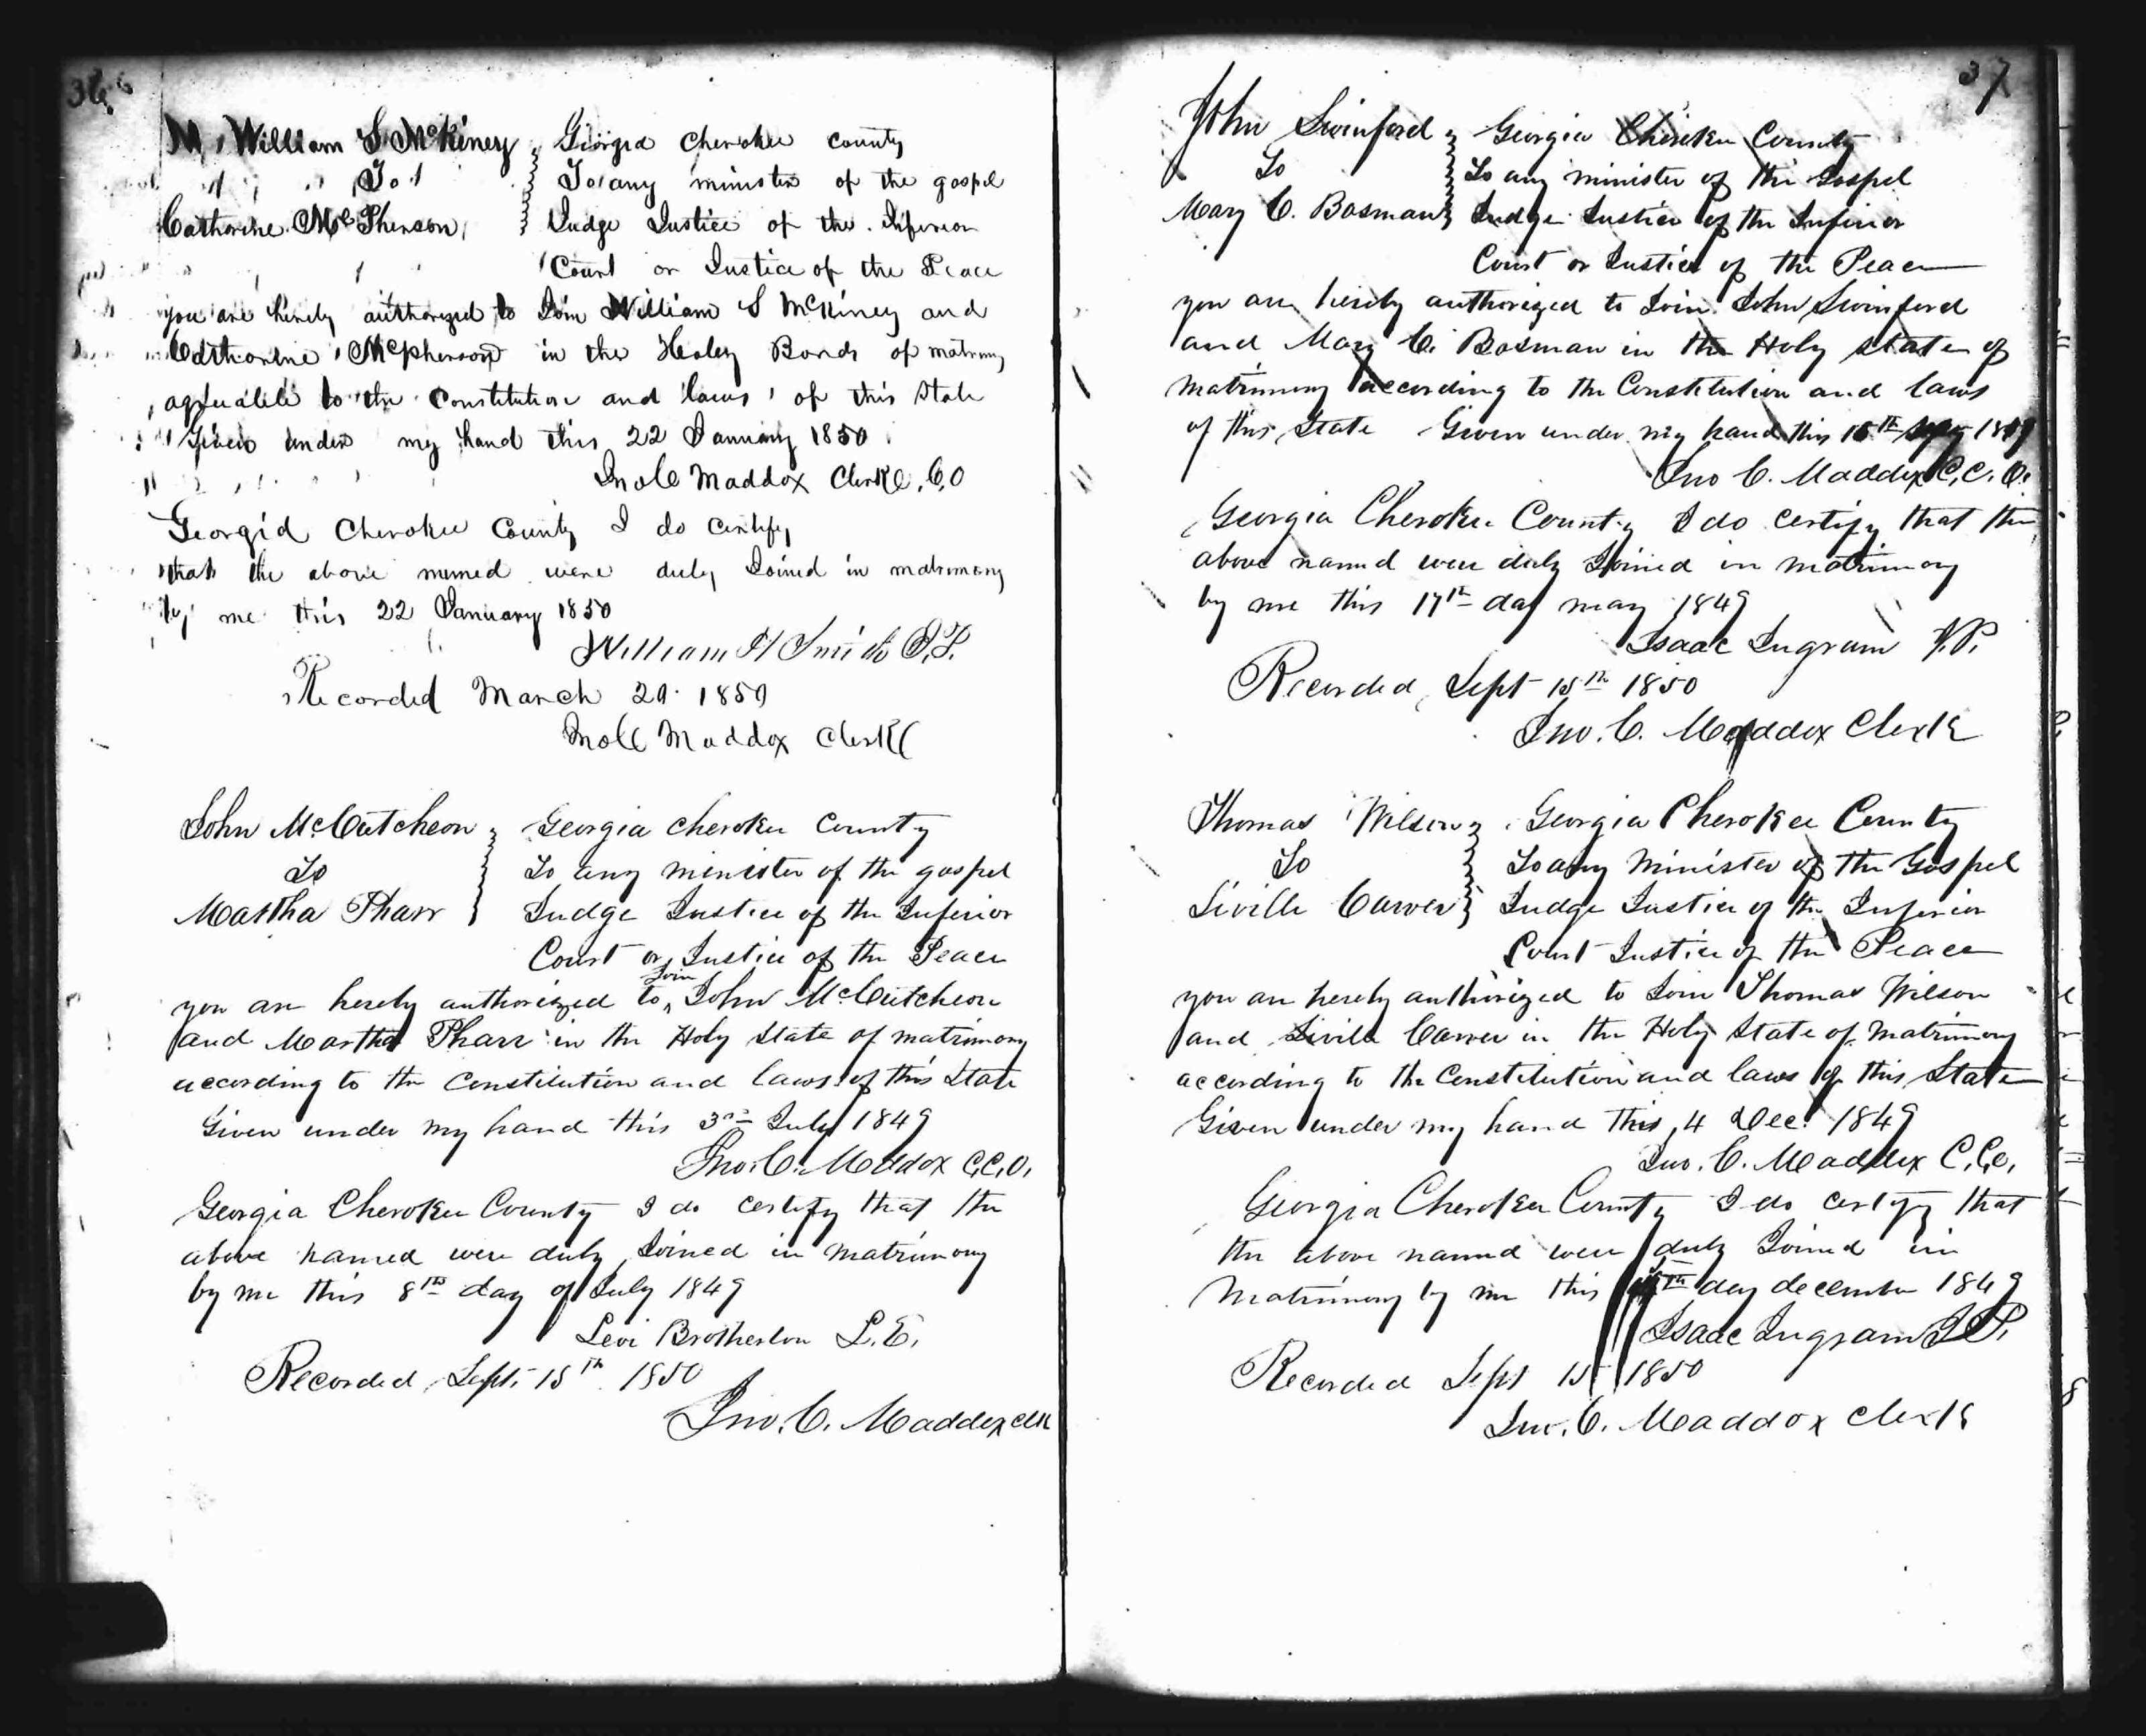 36
M William S. McKiney Georgia Cherokee county
To To any minister of the gospel
Catharine McPherson Judge Justice of the Inferior
Court or Justice of the Peace
you are hereby authorized to Join William S McKiney and
Catharine McPherson in the Holey Bonds of matrimony
agreeable to the Constitution and laws of this State
Given under my hand this 22 January 1850
Jno C Maddox Clerk C,O
Georgia Cherokee County I do Certify
that the above named were duly Joined in matrimony
by me this 22 January 1850
William H Smith J.P.
Recorded March 20 1850
Jno C Maddox Clerk
John McCutcheon Georgia Cherokee County
To To any minister of the gospel
Martha Pharr Judge Justice of the Inferior
Court or Justice of the Peace
you are hereby authorized to Join John McCutcheon
and Martha Pharr in the Holy State of matrimony
according to the Constitution and laws of this State
Given under my hand this 3rd July 1849
Jno. C. Maddox C,C,O,
Georgia Cherokee County I do certify that the
above named were duly Joined in matrimony
by me this 8th day of July 1849
Levi Brotherton L.E.
Recorded, Sept. 15th 1850
Jno. C. Maddox Clk
37
John Swinford Georgia Cherokee County
To To any minister of the Gospel
Mary C. Bosman Judge Justice of the Inferior
Court or Justice of the Peace
you are hereby authorized to Join John Swinford
and Mary C. Bosman in the Holy State of
matrimony according to the Constitution and laws
of this State Given under my hand this
Jno C. Maddox C,C,O.
Georgia Cherokee County I do certify that the
above named were duly Joined in matrimony
by me this 17th day may 1849
Isaac Ingram J.P.
Recorded, Sept 15th 1850
Jno. C. Maddox Clerk
Thomas Wilson Georgia Cherokee County
To To any Minister of the Gospel
Siville Carver Judge Justice of the Inferior
Court Justice of the Peace
you are hereby authorized to Join Thomas Wilson
and Sivill Carver in the Holy State of Matrimony
according to the Constitution and laws of this State
Given under my hand this 4 Dec. 1849
Jno. C. Maddox C,C,O,
Georgia Cherokee County I do certify that
the above named were duly Joined in
Matrimony by me this day december 1849
Isaac Ingram J.P.
Recorded Sept 15 1850
Jno. C. Maddox Clerk